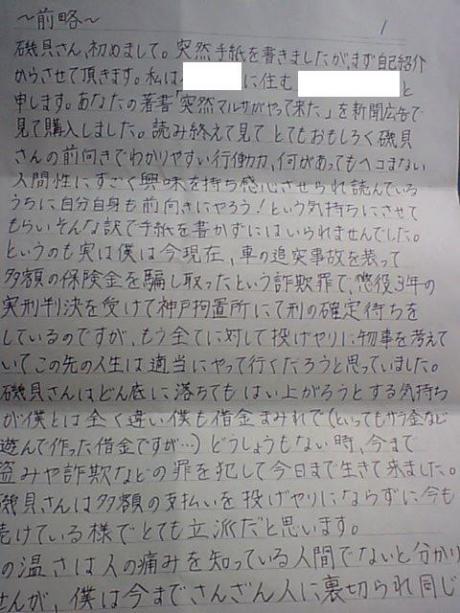 ～前略～
1
磯貝さん、初めまして。突然手紙を書きましたが、まず自己紹介
からさせて頂きます。私は に住む と
申します。あなたの著書「突然マルサがやって来た」を新聞広告で
見て購入しました。読み終えて見てとてもおもしろく磯貝
さんの前向きでわかりやすい行働力、何があってもヘコまない
人間性にすごく興味を持ち感心させられ読んでいる
うちに自分自身も前向きにやろう!という気持ちにさせて
もらいそんな訳で手紙を書かずにはいられませんでした。
というのも実は僕は今現在、車の追突事故を装って
多額の保険金を騙し取ったという詐欺罪で、懲役3年の
実刑判決を受けて神戸拘置所にて刑の確定待ちを
しているのですが、もう全てに対して投げやりに物事を考えて
いてこの先の人生は適当にやって行くだろうと思っていました。
磯貝さんはどん底に落ちてもはい上がろうとする気持ち
が僕とは全く違い僕も借金まみれで(といってもサラ金など
遊んで作った借金ですが…)どうしようもない時、今まで
盗みや詐欺などの罪を犯して今日まで生きて来ました。
磯貝さんは多額の支払いを投げやりにならずに今も
続けている様でとても立派だと思います。
の温さは人の痛みを知っている人間でないと分かり
せんが、僕は今までさんざん人に裏切られ同じ